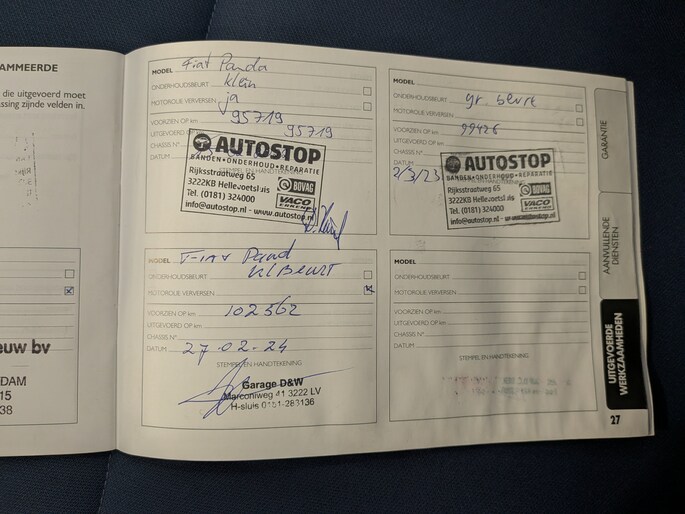 AMMEERDE
die uitgevoerd moet
ssing zijnde velden in.
euw bv
DAM
15
38
MODEL Fiat Panda
ONDERHOUDSBEURT klein
MOTOROLIE VERVERSEN ja
VOORZIEN OP km 95719
UITGEVOERD OP 95719
CHASSIS N°
DATUM
STEMPEL EN HANDTEKENING
AUTOSTOP
BANDEN•ONDERHOUD•REPARATIE
Rijksstraatweg 65
3222KB Hellevoetsluis
Tel. (0181) 324000
www.autostop.nl
BOVAG
VACO
ERKEND
MODEL
ONDERHOUDSBEURT gr. beurt
MOTOROLIE VERVERSEN
VOORZIEN OP km 99426
UITGEVOERD OP km
CHASSIS N°
DATUM
2/3/23
AUTOSTOP
BANDEN•ONDERHOUD•REPARATIE
Rijksstraatweg 65
3222KB Hellevoetsluis
Tel. (0181) 324000
BOVAG
VACO
ERKEND
MODEL Fiat Pand
ONDERHOUDSBEURT Kl Beurt
MOTOROLIE VERVERSEN
VOORZIEN OP km 102562
UITGEVOERD OP km
CHASSIS N°
DATUM 27-02-24
STEMPEL EN HANDTEKENING
Garage D&W
Marconiweg 41 3222 LV
H-sluis
MODEL
ONDERHOUDSBEURT
MOTOROLIE VERVERSEN
VOORZIEN OP km
UITGEVOERD OP km
CHASSIS N°
DATUM
STEMPEL EN HANDTEKENING
GARANTIE
AANVULLENDE
DIENSTEN
UITGEVOERDE
WERKZAAMHEDEN
27